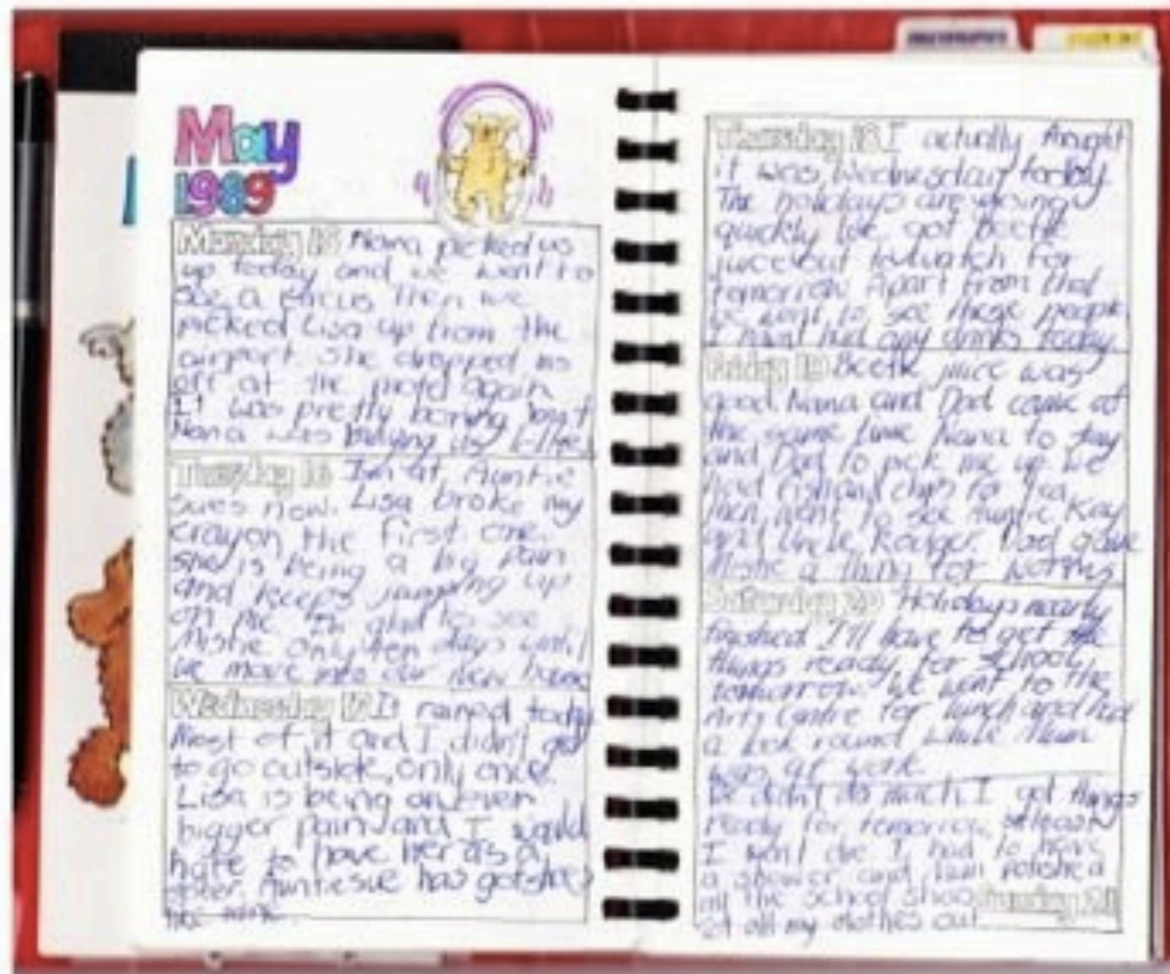 May
1989
Monday 15 Nana picked us
up today and we went to
see a circus then we
picked Lisa up from the
airport. She dropped us
off at the motel again
It was pretty boring
Nana was
Tuesday 16 I'm at Auntie
Sues now. Lisa broke my
crayon the first one.
she is being a big pain
and keeps jumping up
on me I'm glad to see
Mistie only ten days until
we move into our new house
Wednesday 17 It rained today
Most of it and I didn't get
to go outside, only once.
Lisa is being an even
bigger pain and I would
hate to have her as a
Auntie sue has got
the
Thursday 18 I actually thought
it was Wednesday today.
The holidays are going
quickly I've got Beetle
juice out to watch for
tomorrow. Apart from that
we went to see these people
I havnt had any drinks today
Friday 19 Beetle juice was
good. Nana and Dad came at
the same time Nana to stay
and Dad to pick me up we
had fish and chips for tea
then went to see Auntie Kay
and Uncle Rodger. Dad gave
Mistie a thing for worms
Saturday 20 Holidays nearly
finished I'll have to get the
things ready for school
tomorrow. We went to the
Arts Centre for lunch and had
a look round while Mum
was at work.
We didn't do much I got things
ready for tomorrow,
I won't die. I had to have
a shower and Mum polished
all the school shoes Sunday 21
all my clothes out